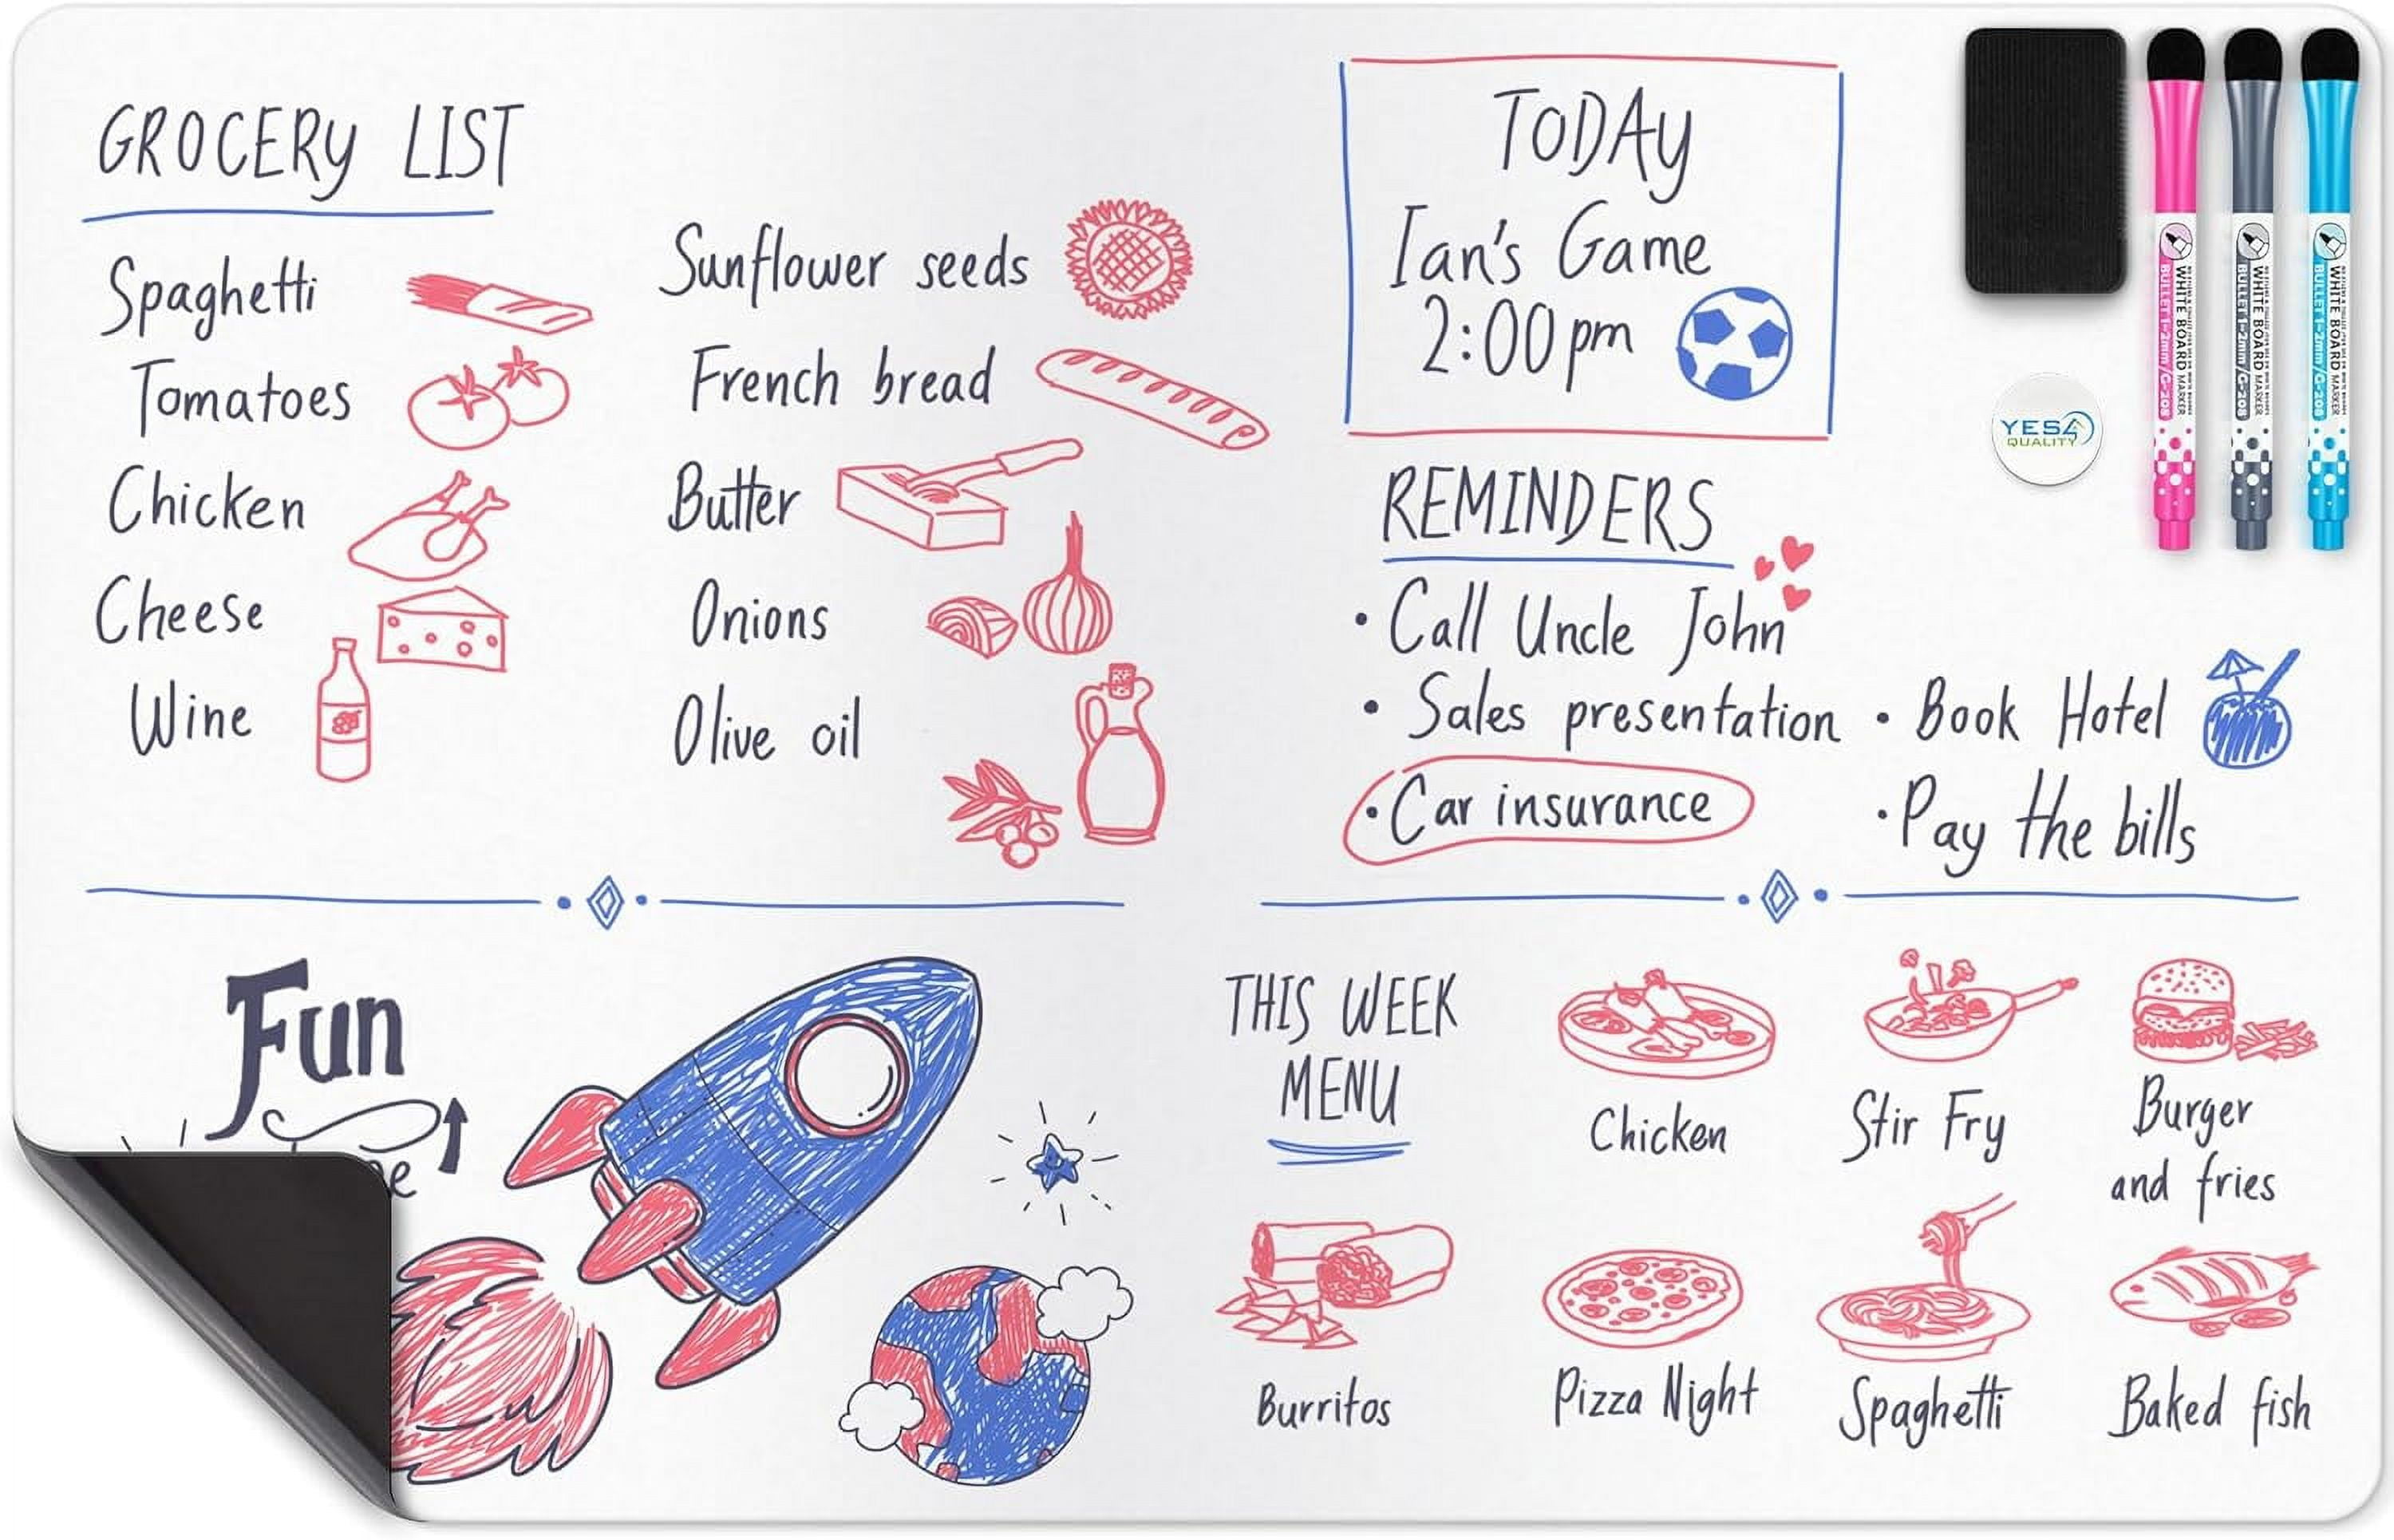 GROCERY LIST
Spaghetti
Tomatoes
Chicken
Cheese
Wine
Sunflower seeds
French bread
Butter
Onions
Olive oil
TODAY
Ian's Game
2:00 pm
REMINDERS
• Call Uncle John
• Sales presentation
• Car insurance
• Book Hotel
• Pay the bills
YES4
QUALITY
WHITE BOARD MARKER
BULLET 1-2mm/G-208
WHITE BOARD MARKER
BULLET 1-2mm/G-208
WHITE BOARD MARKER
BULLET 1-2mm/G-208
Fun
THIS WEEK
MENU
Chicken
Stir Fry
Burger
and fries
Burritos
Pizza Night
Spaghetti
Baked fish